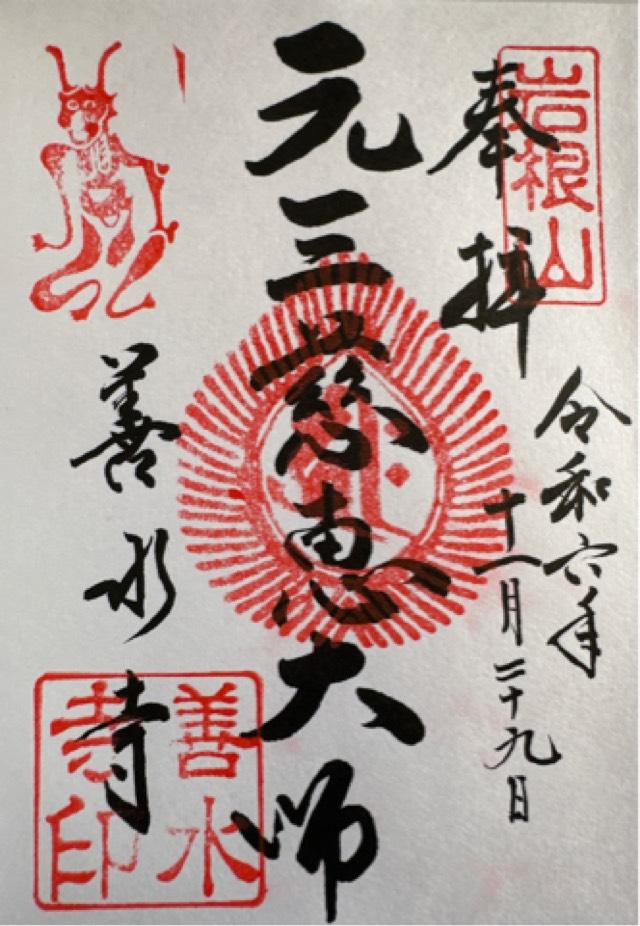 岩根山
奉拝
令和六年
十一月二十九日
元三慈恵大師
善水寺
善水
寺印